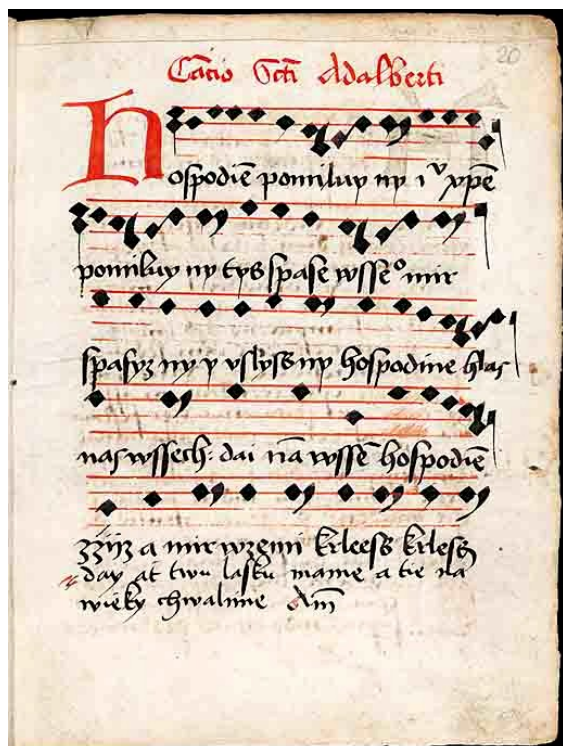 20
Cātio Scti Adalberti
Hospodīe pomiluy ny iᵛ xpē
pomiluy ny tys spase wsseº mir
spasyz ny y vslyss ny hospodine hlas
nas wssech: dai nā wssē hospodīe
zzijz a mir wzemi krleess krless
day at twu lasku mame a tie na
wieky chwalime Am̄